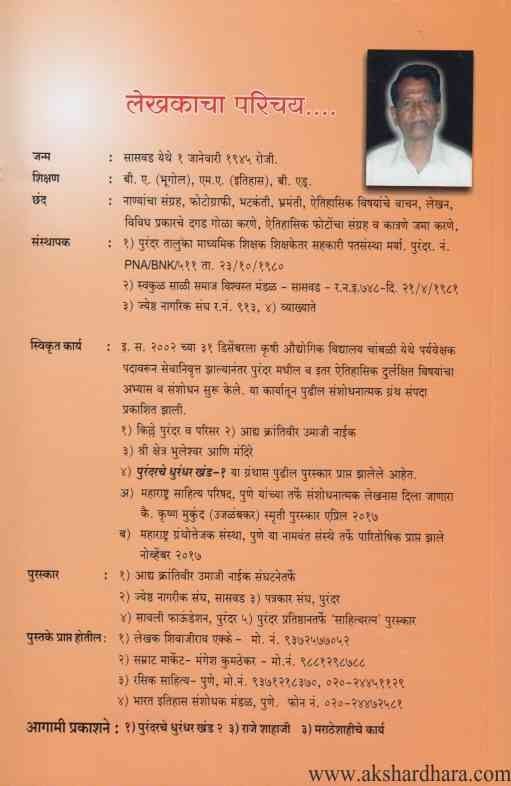 लेखकाचा परिचय....
जन्म : सासवड येथे १ जानेवारी १९४५ रोजी.
शिक्षण : बी. ए. (भूगोल), एम.ए. (इतिहास), बी. एड्.
छंद : नाण्यांचा संग्रह, फोटोग्राफी, भटकंती, भ्रमंती, ऐतिहासिक विषयांचे वाचन, लेखन,
विविध प्रकारचे दगड गोळा करणे, ऐतिहासिक फोटोंचा संग्रह व कात्रणे जमा करणे,
संस्थापक : १) पुरंदर तालुका माध्यमिक शिक्षक शिक्षकेतर सहकारी पतसंस्था मर्या. पुरंदर. नं.
PNA/BNK/५११ ता. २३/१०/१९८०
२) स्वकुळ साळी समाज विश्वस्त मंडळ - सासवड - र.न.इ.७४८-दि. २१/४/१९८१
३) ज्येष्ठ नागरिक संघ र.नं. ९१३, ४) व्याख्याते
स्विकृत कार्य : इ. स. २००२ च्या ३१ डिसेंबरला कृषी औद्योगिक विद्यालय चांबळी येथे पर्यवेक्षक
पदावरून सेवानिवृत्त झाल्यानंतर पुरंदर मधील व इतर ऐतिहासिक दुर्लक्षित विषयांचा
अभ्यास व संशोधन सुरू केले. या कार्यातून पुढील संशोधनात्मक ग्रंथ संपदा
प्रकाशित झाली.
१) किल्ले पुरंदर व परिसर २) आद्य क्रांतिवीर उमाजी नाईक
३) श्री क्षेत्र भुलेश्वर आणि मंदिरे
४) पुरंदरचे धुरंधर खंड-१ या ग्रंथास पुढील पुरस्कार प्राप्त झालेले आहेत.
अ) महाराष्ट्र साहित्य परिषद, पुणे यांच्या तर्फे संशोधनात्मक लेखनास दिला जाणारा
कै. कृष्ण मुकुंद (उजळंबकर) स्मृती पुरस्कार एप्रिल २०१७
ब) महाराष्ट्र ग्रंथोत्तेजक संस्था, पुणे या नामवंत संस्थे तर्फे पारितोषिक प्राप्त झाले
नोव्हेंबर २०१७
पुरस्कार : १) आद्य क्रांतिवीर उमाजी नाईक संघटनेतर्फे
२) ज्येष्ठ नागरीक संघ, सासवड ३) पत्रकार संघ, पुरंदर
४) सावली फाऊंडेशन, पुरंदर ५) पुरंदर प्रतिष्ठानतर्फे 'साहित्यरत्न' पुरस्कार
पुस्तके प्राप्त होतील: १) लेखक शिवाजीराव एक्के - मो. नं. ९३७२५७७०५२
२) सम्राट मार्केट- मंगेश कुमठेकर - मो.नं. ९८८१२९८७८८
३) रसिक साहित्य- पुणे, मो.नं. ९३७१२१८३७०, ०२०-२४४५११२९
४) भारत इतिहास संशोधक मंडळ, पुणे. फोन नं. ०२०-२४४७२५८१
आगामी प्रकाशने : १) पुरंदरचे धुरंधर खंड २ २) राजे शहाजी ३) मराठेशाहीचे कार्य
www.akshardhara.com